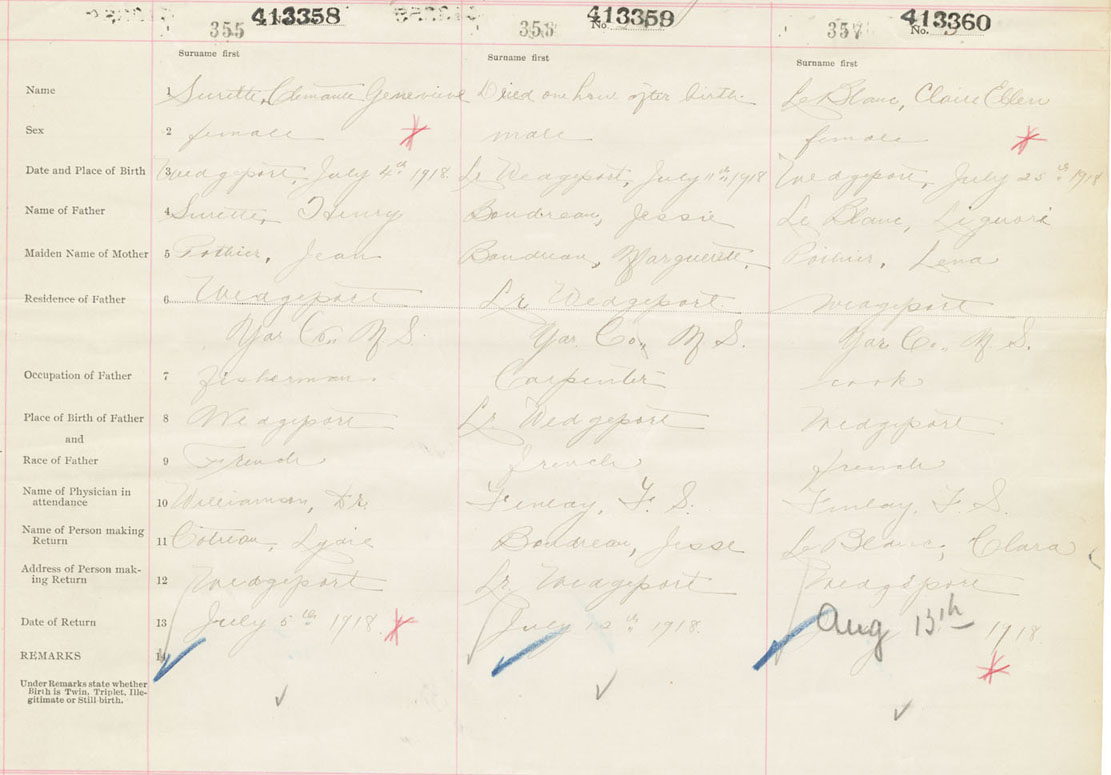 413358 413359 413360
355 No. 357 No.
Surname first Surname first Surname first
Name 1 Surette, Clemance Genevieve Died one hour after birth. Le Blanc, Claire Ellen
Sex 2 female male female
Date and Place of Birth 3 Wedgeport, July 4th 1918 Lr Wedgeport, July 11th 1918 Wedgeport, July 25th 1918
Name of Father 4 Surette, Henry Boudreau, Jessie Le Blanc, Liguori
Maiden Name of Mother 5 Pothier, Jean Boudreau, Marguerite. Pothier, Lena
Residence of Father 6 Wedgeport Lr Wedgeport Wedgeport
Yar Co., N S. Yar. Co., N S. Yar Co., N S.
Occupation of Father 7 fisherman. Carpenter cook
Place of Birth of Father 8 Wedgeport Lr. Wedgeport Wedgeport
and
Race of Father 9 French french french
Name of Physician in
attendance 10 Williamson, Dr. Finlay, F. S. Finlay, F. S.
Name of Person making
Return 11 Cotreau, Lydie Boudreau, Jesse Le Blanc, Clara
Address of Person mak-
ing Return 12 Wedgeport Lr Wedgeport Wedgeport
Date of Return 13 July 5th 1918 July 1918. Aug 13th 1918
REMARKS 14
Under Remarks state whether
Birth is Twin, Triplet, Ille-
gitimate or Still birth.